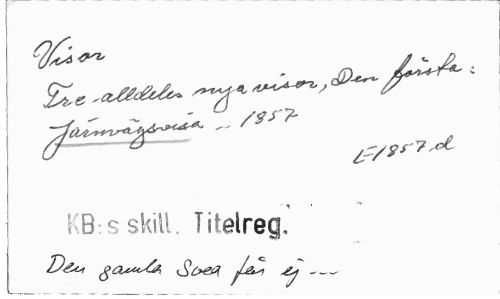 Visor
Tre alldeles nya visor, Den första:
Järnvägsvisa - 1857
E1857 d
KB:s skill. Titelreg.
Den gamla Svea får ej ---